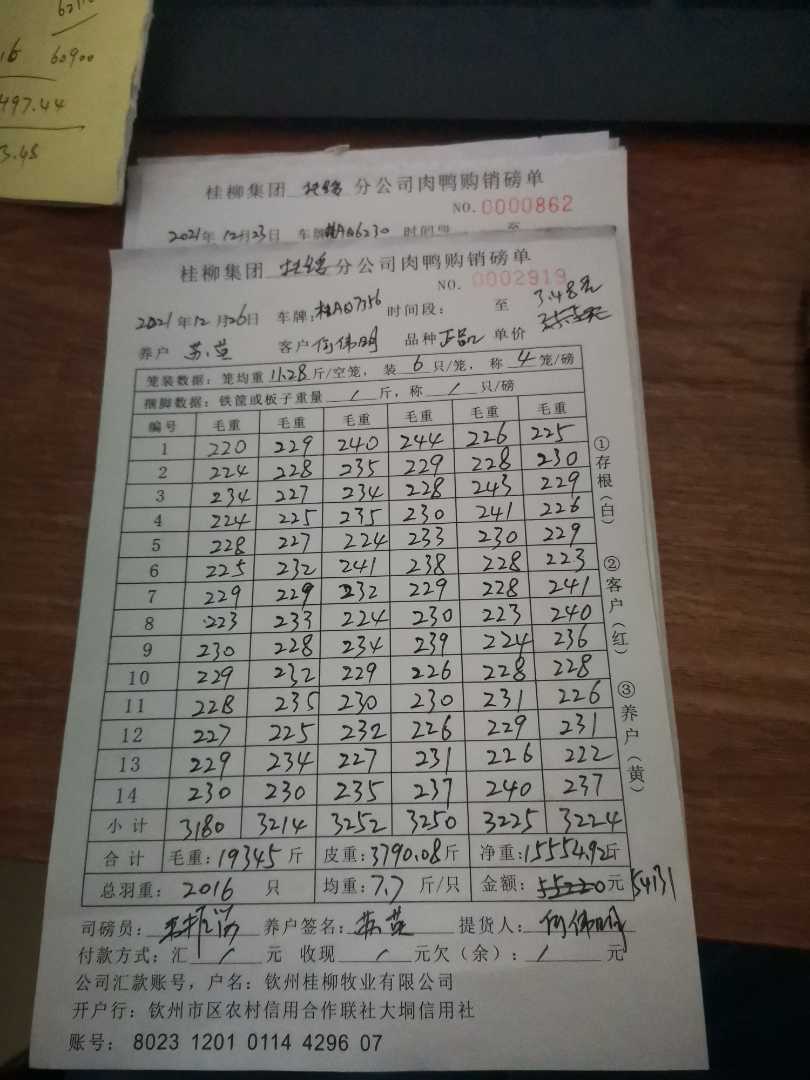 62110
16 60900
497.44
3.48
桂柳集团 分公司肉鸭购销磅单
NO. 0000862
2021年 12月23日 车牌 桂AQ6230 时间段 至
桂柳集团 分公司肉鸭购销磅单
NO. 0002919
2021年12月26日 车牌: 桂AQ7356 时间段: 至 3.48元
养户 苏莹 客户 何伟明 品种 正品 单价
笼装数据: 笼均重 11.28 斤/空笼, 装 6 只/笼, 称 4 笼/磅
捆脚数据: 铁筐或板子重量 / 斤, 称 / 只/磅
编号 毛重 毛重 毛重 毛重 毛重 毛重
1 220 229 240 244 226 225
2 224 228 235 229 228 230
3 234 227 234 228 243 229
4 224 225 235 230 241 226
5 228 227 224 233 230 229
6 225 232 241 238 228 223
7 229 229 232 229 228 241
8 223 233 224 230 223 240
9 230 228 234 239 224 236
10 229 232 229 226 228 228
11 228 235 230 230 231 226
12 227 225 232 226 229 231
13 229 234 227 231 226 222
14 230 230 235 237 240 237
小计 3180 3214 3252 3250 3225 3224
合计 毛重: 19345 斤 皮重: 3790.08斤 净重: 15554.92斤
总羽重: 2016 只 均重: 7.7 斤/只 金额: 55220 元 54131
司磅员: 养户签名: 苏莹 提货人: 何伟明
付款方式: 汇 / 元 收现 / 元欠(余): / 元
公司汇款账号, 户名: 钦州桂柳牧业有限公司
开户行: 钦州市区农村信用合作联社大垌信用社
账号: 8023 1201 0114 4296 07
①存根(白)
②客户(红)
③养户(黄)